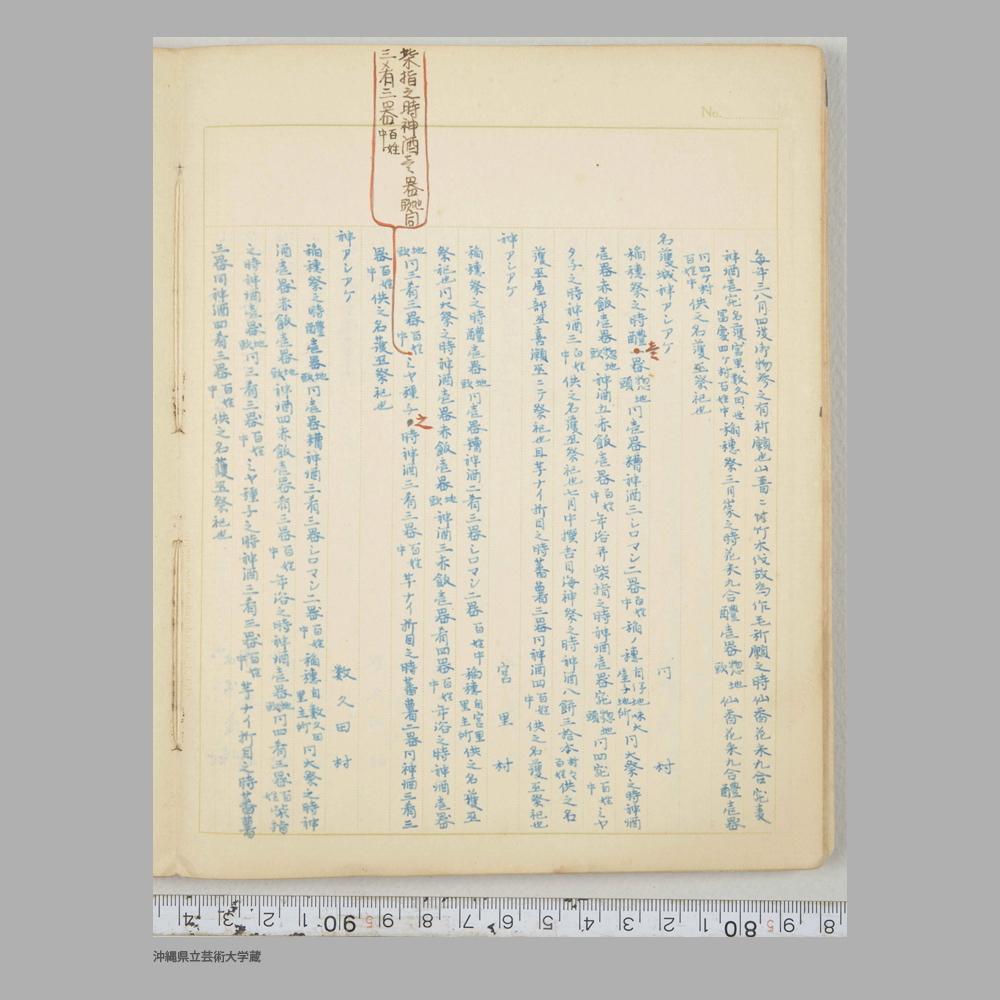 柴指之時神酒壱器地頭同
三〆肴三器百姓中
No.
毎年三八月四度御物参之有祈願也山留ニ附竹木伐故為作毛祈願之時仙香花米九合宛麦
神酒壱宛名護宮里、数久田、世冨慶四ヶ村百姓中稲穂祭三日崇之時花米九合醴壱器惣地頭仙香花米九合醴壱器
同四ヶ村百姓中供之名護巫祭祀也
名護城神アシアゲ 同村
稲穂祭之時醴壱器惣地頭同壱器糟神酒三シロマシ二器百姓中稲ノ穂自
壱器赤飯壱器惣地頭神酒五赤飯壱器百姓中年浴并柴指之時神酒壱器宛惣地頭同四宛百姓中ミヤ
タ子之時神酒三百姓中供之名護巫祭祀也七月中撰吉日海神祭之時神酒八餅三拾本村々百姓供之名
護巫屋部巫喜瀬巫ニテ祭祀也且芋ナイ折目之時蕃薯三器同神酒四百姓中供之名護巫祭祀也
神アシアゲ 宮里村
稲穂祭之時醴壱器地頭同壱器糟神酒二肴三器シロマシ二器百姓中稲穂自宮里里主所供之名護巫
祭祀也同大祭之時神酒壱器赤飯壱器地頭神酒三赤飯壱器肴四器百姓中年浴之時神酒壱器
地頭同三肴三器百姓中ミヤ種子之時神酒三肴三器百姓中芋ナイ折目之時蕃薯二器同神酒三肴三
器百姓中供之名護巫祭祀也
神アシアゲ 数久田村
稲穂祭之時醴壱器地頭同壱器糟神酒三肴三器シロマシ二器百姓中稲穂自数久田里主所同大祭之時神
酒壱器赤飯壱器地頭神酒四赤飯壱器肴三器百姓中年浴之時神酒壱器地頭同四肴三器百姓中柴指
之時神酒壱器地頭同三肴三器百姓中ミヤ種子之時神酒三肴三器百姓中芋ナイ折目之時蕃薯
三器同神酒四肴三器百姓中供之名護巫祭祀也
沖縄県立芸術大学蔵